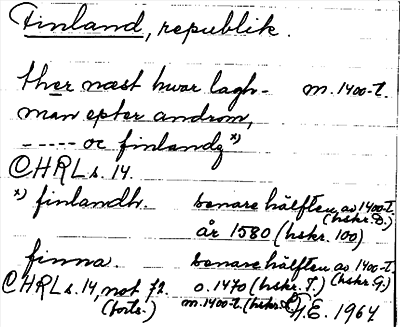 Finland, republik.
ther næst hwar lagh- m. 1400-t.
man epter androm,
----- oc finlandz x)
CHRL s. 14.
x) finlandh. senare hälften av 1400-t. (hskr. D.)
år 1580 (hskr. 100)
finna. senare hälften av 1400-t. (hskr. G.)
CHRL s. 14, not 72. o. 1470 (hskr. J.)
(forts.) m. 1400-t. (hskr. E.) G.E. 1964